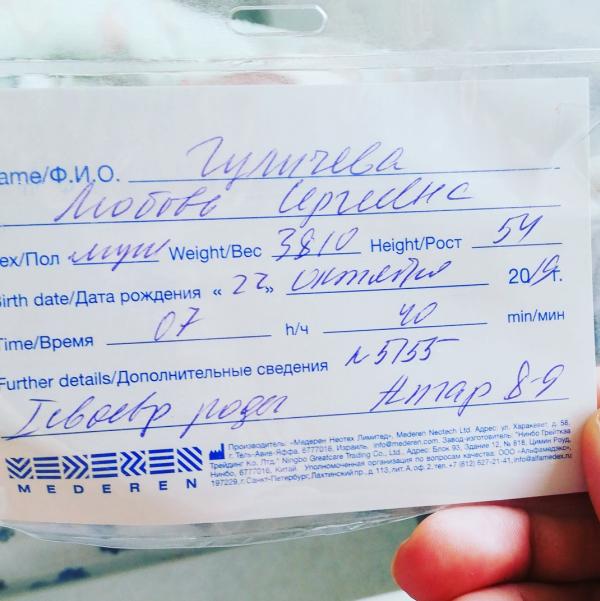 ame/Ф.И.О. Гуличева
Любовь Сергеевна
ex/Пол муж Weight/Вес 3810 Height/Рост 54
Birth date/Дата рождения « 22 » октября 2019г.
Time/Время 07 h/ч 40 min/мин
Further details/Дополнительные сведения N 5155
I своевр роды Апгар 8-9
MEDEREN
Производитель: «Медерен Неотех Лимитед», Mederen Neotech Ltd. Адрес: ул. Харакевет, д. 58,
г. Тель-Авив-Яффа, 6777016, Израиль, info@mederen.com. Завод-изготовитель: "Нинбо Грейткеа
Трейдинг Ко., Лтд." Ningbo Greatcare Trading Co., Ltd., Адрес: Блок 93, Здание 12, № 818, Цимин Роуд,
Нинбо, 6777016, Китай. Уполномоченная организация по вопросам качества: ООО «Альфамедэкс»,
197229, г. Санкт-Петербург, Лахтинский пр., д. 113, лит. А, оф. 2, тел. +7 (812) 627-21-41, info@alfamedex.ru